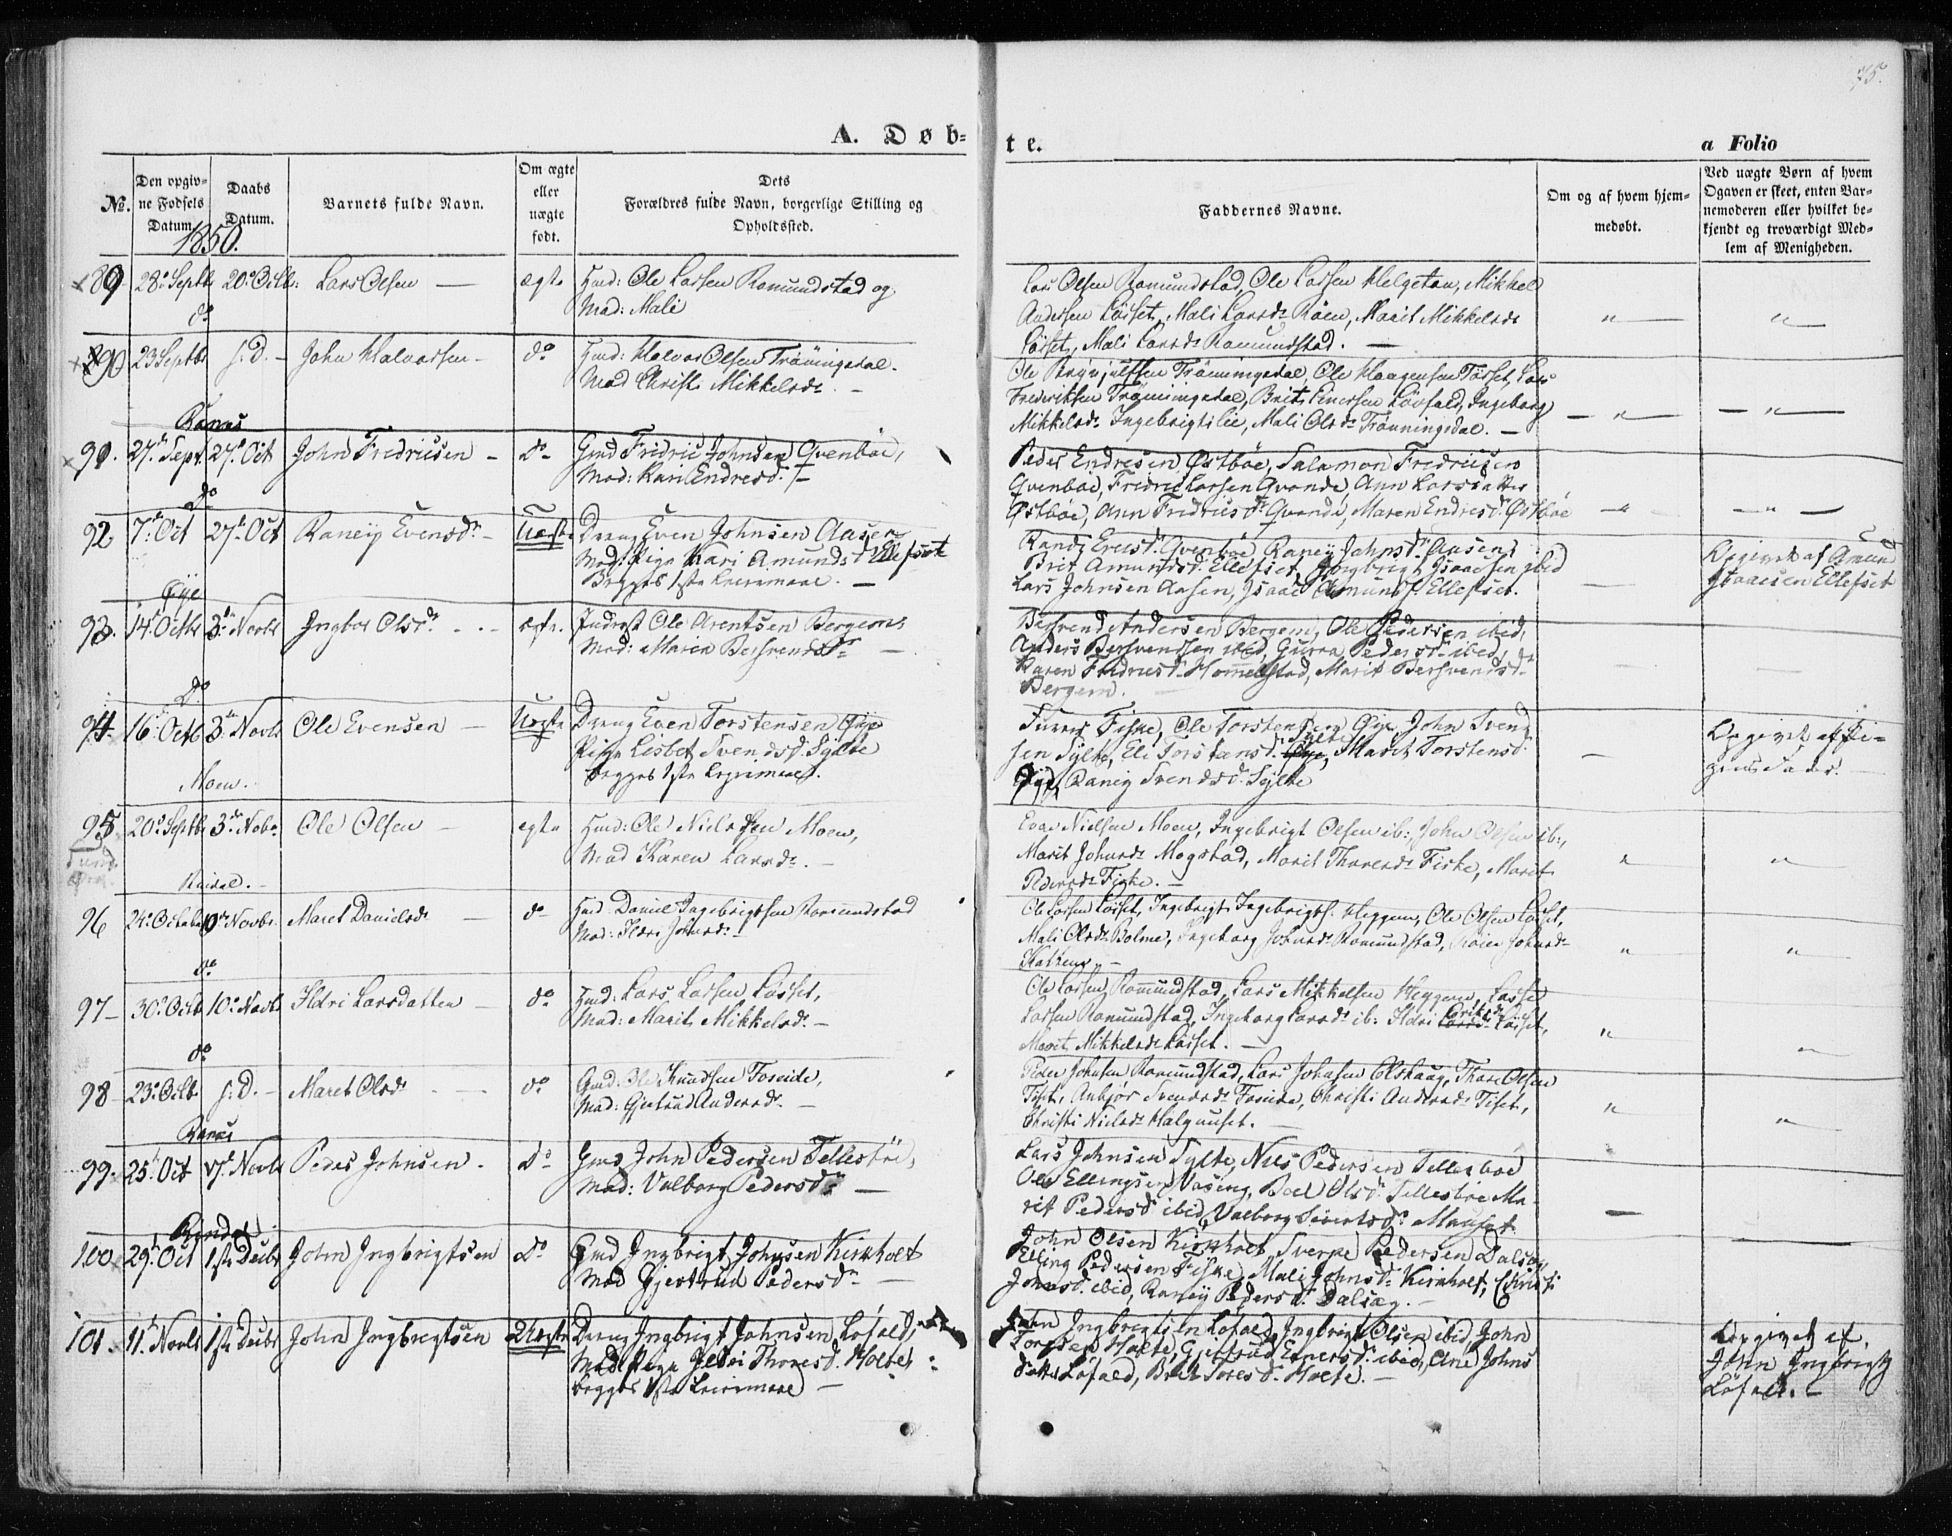 75.
A. Døb-
te.
a Folio
No.
Den opgiv-
ne Fødsels
Datum.
Daabs
Datum.
Barnets fulde Navn.
Om ægte
eller
uægte
født.
Dets
Forældres fulde Navn, borgerlige Stilling og
Opholdssted.
Faddernes Navne.
Om og af hvem hjem-
medøbt.
Ved uægte Børn af hvem
Opgaven er skeet, enten Bar-
nemoderen eller hvilket be-
kjendt og troværdigt Med-
lem af Menigheden.
1850.
89 28de Septb 20de Octb: Lars Olsen — ægte Gmd: Ole Larsen Romundstad og
Mod: Mali
Lars Olsen Romundstad, Ole Larsen Helgetun, Mikkel
Andersen Løset, Mali Larsdr Røen, Marit Mikkelsdr
Løset, Mali Larsdr Romundstad. —
do
90 23 Septbr s: D. — John Halvorsen — do Gmd: Halvor Olsen Trønningsdal.
Mod Christi Mikkelsdr. —
Ole Brynjulfsen Trønningsdal, Ole Haagensen Tørset, Lars
Fredriksen Trønningsdal, Brit Einersen Løvfald, Ingeborg
Mikkelsdr Ingebrigtslie, Mali Olsdr Trønningsdal. —
Ranæs
91. 27de Sept. 27de Oct John Fredricsen — do Gmd Fridric Johnsen Qvenbøe,
Mod: Kari Endresdr. —
Peder Endresen Østbøe, Salamon Fredricsen
Qvenbøe, Fredric Larsen Qvande, Ane Larsdatter
Østbøe, Ann Fredricsdr Qvande, Maren Endresdr Østbøe
do
92 7de Oct 27de Oct Raney Evensdr — Uægte Dreng Even Johnsen Aasen
Mod: Pige Kari Amundsdr Ellefsæt
Begges 1ste Leiermaal. —
Randi Erersdr Qvenbøe, Raney Johnsdr Aasen,
Brit Amundsdr Ellefset, Ingbrigt Isaacsen ibid
Lars Johnsen Aasen, Isaac Amunds. Ellefset.
Opgivet af Amund
Isaacsen Ellefset
Øye
93. 14de Octbr 3de Novbr Ingbor Olsdr ægte. Inderst Ole Arentsen Bergem,
Mod: Maren Bersvendsdr —
Bersvend Andersen Bergem, Ole Pedersen ibid,
Anders Bersvendsen ibid, Gurra Pedersdr ibid,
Karen Fredricsdr Hommelstad, Marit Bersvendsdr
Bergem.
do
94. 16de Octb 3de Novbr Ole Evensen — Uægte Dreng Even Torstensen Øye
Pige Lisbet Svendsdr Sylte
begges 1ste Leiermaal.
Fiske, Ole Torstensen Øye, John Svend-
sen Sylte, Eli Torstensdr Sylte, Marit Torstensdr
Øye, Raney Svendsdr Sylte
Opgivet af Pi-
gens Fader.
Moen.
95 20de Septbr 3de Nobr. Ole Olsen — ægte Gmd: Ole Nielsen Moen,
Mod Karen Larsdr. —
Even Nielsen Moen, Ingebrigt Olsen ib:, John Olsen ib:,
Marit Johnsdr Mogstad, Marit Thoresdr Fiske, Marit
Pedersdr Fiske. —
96 24de October 10de Novbr. Maret Danielsdr — do Gmd. Daniel Ingebrigtsen Romundstad
Mod: Ildri Johnsdr. —
Ole Larsen Løset, Ingebrigt Ingebrigts. Heggem, Ole Olsen Løset,
Mali Olsdr Bolme, Ingeborg Johnsdr Romundstad, Johnsdr
do
97 — 30de Octb 10de Novbr Ildri Larsdatter — do Gmd: Lars Larsen Løset,
Mod: Marit Mikkelsdr. —
Ole Larsen Romundstad, Lars Mikkelsen Heggem, Lasse
Larsen Romundstad, Ingeborg Larsdr ib: Ildri Eriksdr Løset,
Marit Mikkelsdr Løset. —
do
98 — 23de Octb s: D. — Maret Olsdr do Gmd: Ole Knudsen Foseide,
Mod: Gjertrud Andersdr. —
Peder Johnsen Romundstad, Lars Johnsen Olshaug, Thore Olsen
Tiset, Anbjør Svendsdr Foseide, Christi Andersdr Tiset,
Christi Nielsdr Halgunset. —
Ranæs
99. 25de Oct 17de Novbr Peder Johnsen. do Gmd John Pedersen Tellesbøe,
Mod: Valborg Pedersdr —
Lars Johnsen Sylte, Niels Pedersen Tellesbøe
Ole Ellingsen Vaseng, Boel Olsdr Tellesbøe, Ma-
rit Pedersdr ibid, Valborg Sivertsdr Mauset
Rindal.
100. 29de Oct 1ste Decbr John Ingbrigtsen do Gmd Ingbrigt Johnsen Kirkholt
Mod Gjertrud Pedersdr —
John Olsen Kirkholt, Sverke Pedersen Dalsæg,
Elling Pedersen Fiske, Mali Johnsdr Kirkholt, Christi
Jonesdr ibid, Raney Pedersdr Dalsæg. —
101. 11de Novbr 1ste Decbr John Ingbrigtsen Uægte Dreng Ingbrigt Johnsen Løfald,
Mod: Pige Ildri Thoresdr Holte,
begges 1ste Leiermaal —
Ingbrigtsen Løfald, Ingbrigt Olsen ibid, John
Toresen Holte, Gjertrud Einersdr ibid, Ane Johns
datter Løfald, Brit Toresdr Holte. —
Opgivet af
John Ingbrigts
Løfald. —